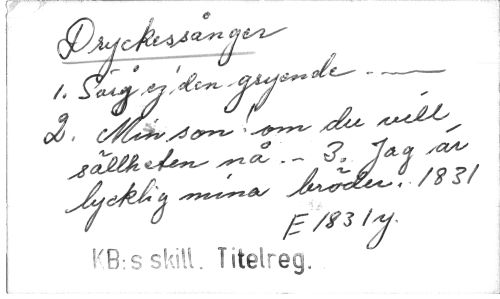 Dryckessånger
1. Sörj ej den gryende . ——
2. Min son! om du vill
sällheten nå. – 3. Jag är
lycklig mina bröder. 1831
E 1831y.
KB:s skill. Titelreg.